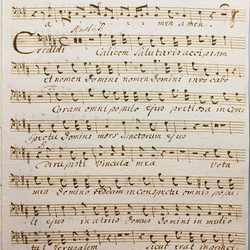 a men amen.
Credidi Calicem Salutaris accipiam
et nomen Domini nomen Domini invocabo
Coram omni populo ejus pretiosa in con
spectu Domini mors Sanctorum ejus
Dirupisti Vincula mea Vota
mea Domino reddam in conspectu omnis popu
li ejus in atriis Domus Domini in medio
tui Jerusalem Sicut erat in prin